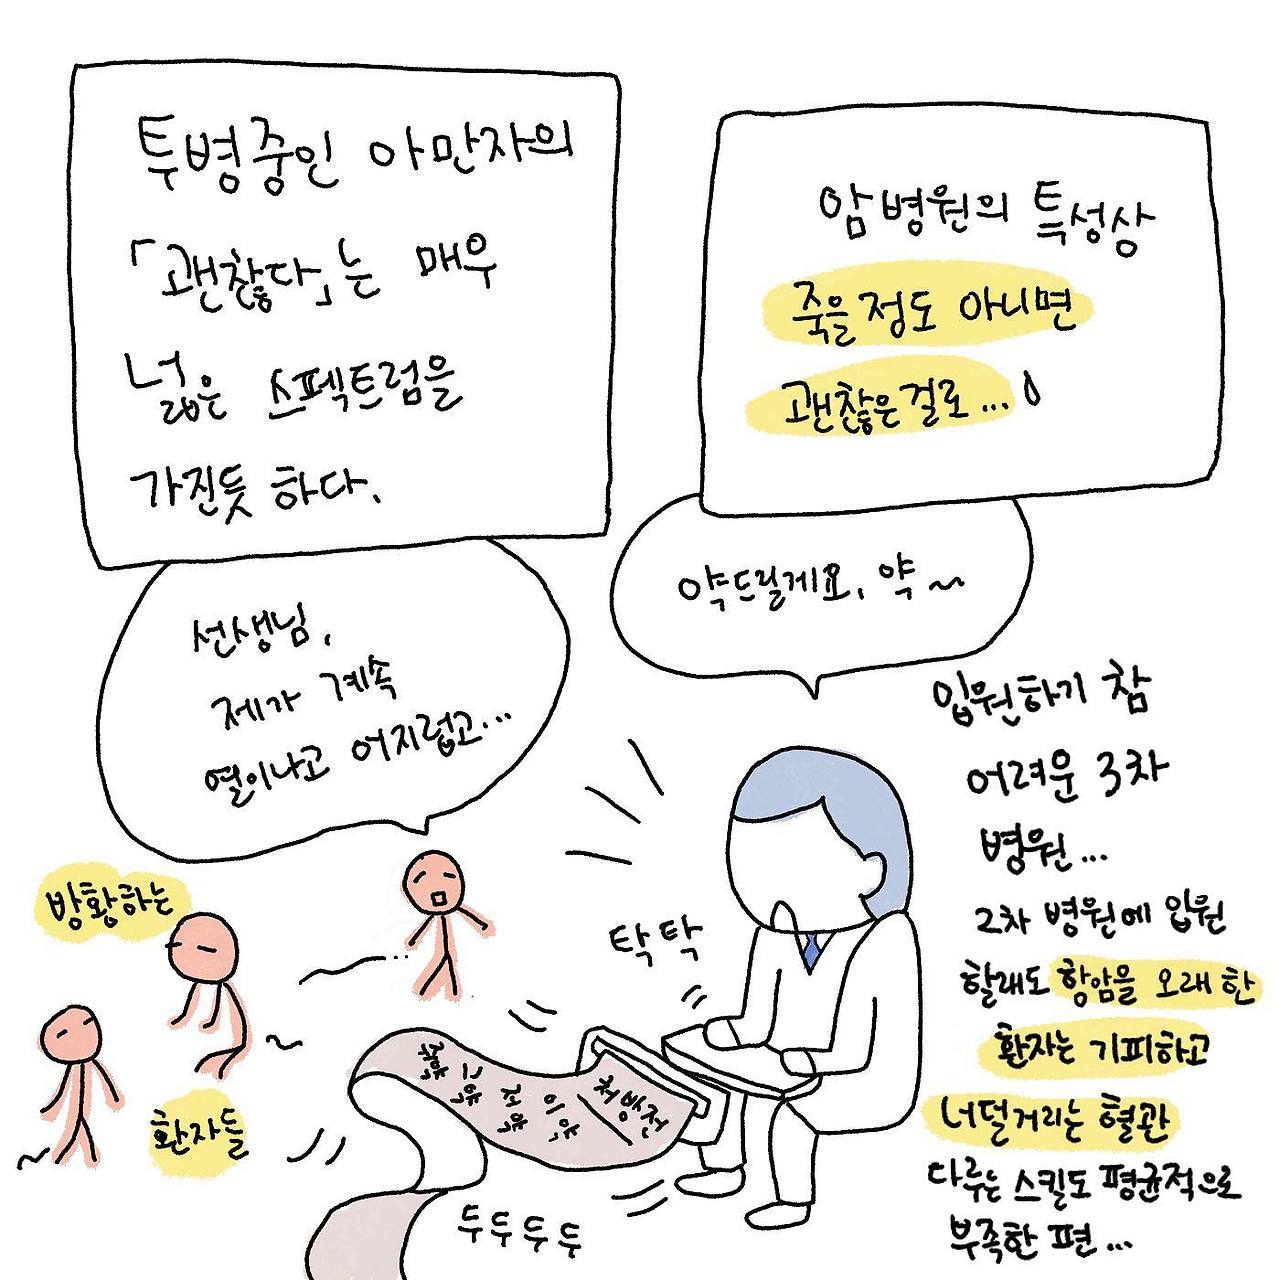 투병중인 아만자의
「괜찮다」는 매우
넓은 스펙트럼을
가진듯 하다.
암병원의 특성상
죽을정도 아니면
괜찮은걸로...
선생님,
제가 계속
열이나고 어지럽고...
약드릴게요, 약~
입원하기 참
어려운 3차
병원...
2차 병원에 입원
할래도 항암을 오래 한
환자는 기피하고
너덜거리는 혈관
다루는 스킬도 평균적으로
부족한 편...
방황하는
환자들
탁탁
처방전
이약
저약
두두두두